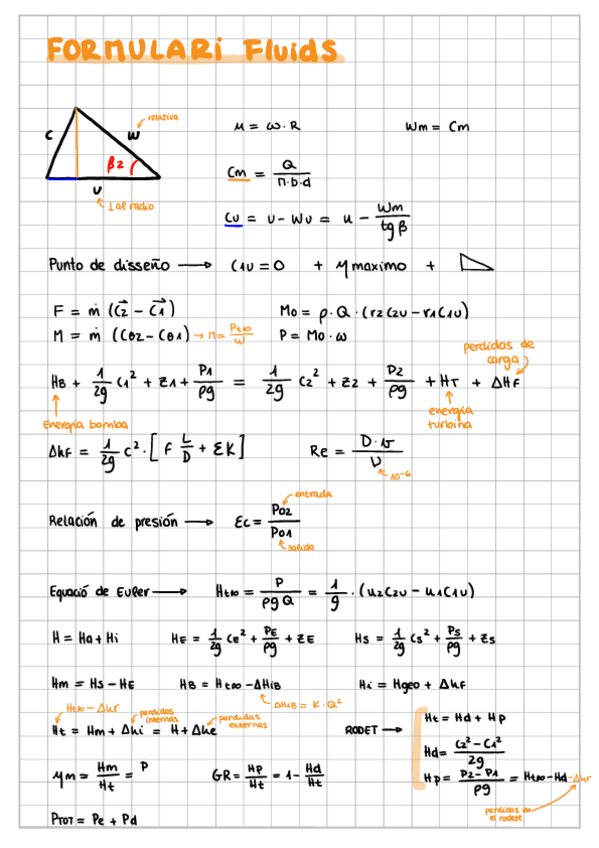 FORMULARi Fluids
relativa
C
W
β2
U
⊥ al radio
u = ω·R
Wm = Cm
Cm = Q / π·b·d
CU = U - WU = u - Wm / tg β
Punto de disseño → C1U = 0 + η maximo +
F = ṁ (C2 - C1)
Mo = ρ·Q·(r2C2U - r1C1U)
M = ṁ (Cθ2 - Cθ1) → M = Pt∞ / ω
P = Mo·ω
perdidas de carga
HB + 1/2g C1² + Z1 + P1/ρg = 1/2g C2² + Z2 + P2/ρg + HT + ΔHF
Energia bomba
energia turbina
ΔhF = 1/2g C² · [F L/D + ΣK]
Re = D·v / ν
10⁻⁶
Relación de presión → Ec = P02 / P01
entrada
salida
Equació de Euler → Ht∞ = P / ρgQ = 1/g · (u2C2U - u1C1U)
H = Ha + Hi
HE = 1/2g CE² + PE/ρg + ZE
HS = 1/2g CS² + PS/ρg + ZS
Hm = HS - HE
HB = Ht∞ - ΔHiB
Hi = Hgeo + ΔhF
ΔHiB = K·Q²
Ht∞ - Δhr
perdidas internas
perdidas externas
Ht = Hm + Δhi = H + Δhe
RODET →
Ht = Hd + Hp
Hd = C2² - C1² / 2g
Hp = P2 - P1 / ρg = Ht∞ - Hd - Δhr
perdidas en el rodete
ηm = Hm / Ht = P
GR = Hp / Ht = 1 - Hd / Ht
PTOT = Pe + Pd